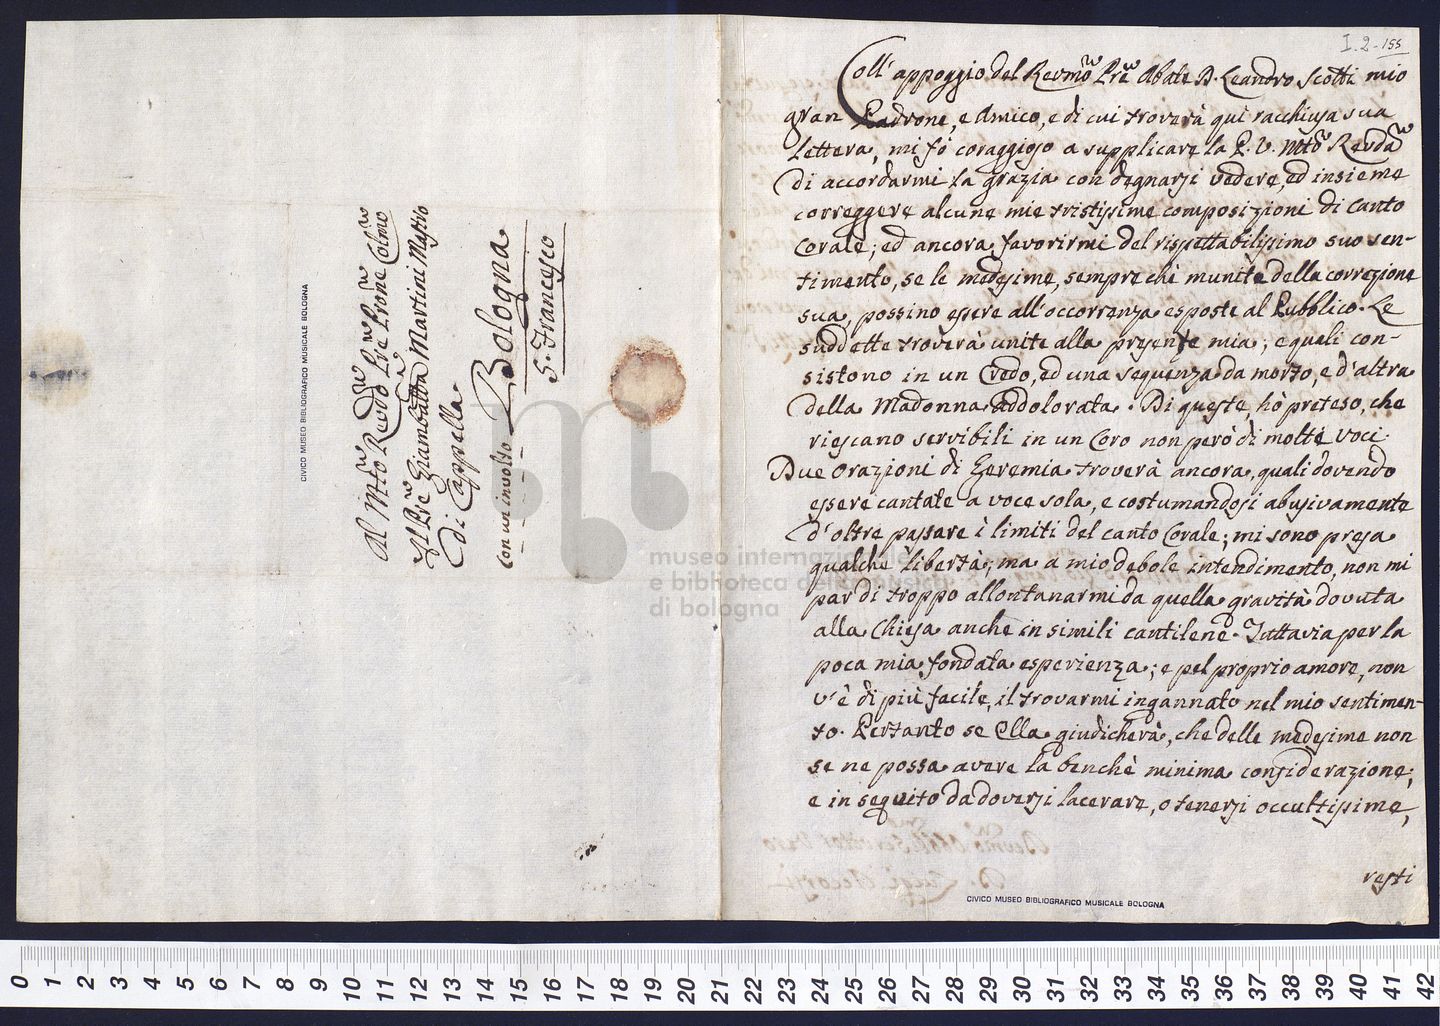 Al M.to Rev.do Pre Pne Colmo
Il Pre Giambatta Martini Maestro
di Cappella.
Con un involto Bologna
S. Francesco
CIVICO MUSEO BIBLIOGRAFICO MUSICALE BOLOGNA
museo internazionale
e biblioteca della musica
di bologna
I.2-155
Coll' appoggio del Revmo Pre Abate D. Leandro Scotti mio
gran Padrone, e Amico, e di cui troverà qui racchiusa sua
lettera, mi fò coraggioso a supplicare la P. V. Mto Revda
di accordarmi la grazia con degnarsi vedere, ed insieme
correggere alcune mie tristissime composizioni di Canto
Corale; ed ancora favorirmi del rispettabilissimo suo sen-
timento, se le medesime, sempre chè munite della correzione
sua, possino essere all'occorrenza esposte al Pubblico. Le
suddette troverà unite alla presente mia; e quali con-
sistono in un Credo, ed una sequenza da morto, e d'altra
della Madonna Addolorata. Di queste, hò preteso, che
riescano servibili in un Coro non però di molte voci.
Due Orazioni di Geremia troverà ancora, quali dovendo
essere cantate a voce sola, e costumandosi abusivamente
d'oltre passare i limiti del canto Corale; mi sono presa
qualche libertà; ma a mio debole intendimento, non mi
par di troppo allontanarmi da quella gravità dovuta
alla Chiesa anche in simili cantilene. Tuttavia per la
poca mia fondata esperienza; e pel proprio amore, non
v'è di più facile, il trovarmi ingannato nel mio sentimen-
to. Pertanto se Ella giudicherà, che delle medesime non
se ne possa avere la benchè minima considerazione;
e in seguito da doversi lacerare, o tenersi occultissime,
resti
CIVICO MUSEO BIBLIOGRAFICO MUSICALE BOLOGNA
0 1 2 3 4 5 6 7 8 9 10 11 12 13 14 15 16 17 18 19 20 21 22 23 24 25 26 27 28 29 30 31 32 33 34 35 36 37 38 39 40 41 42